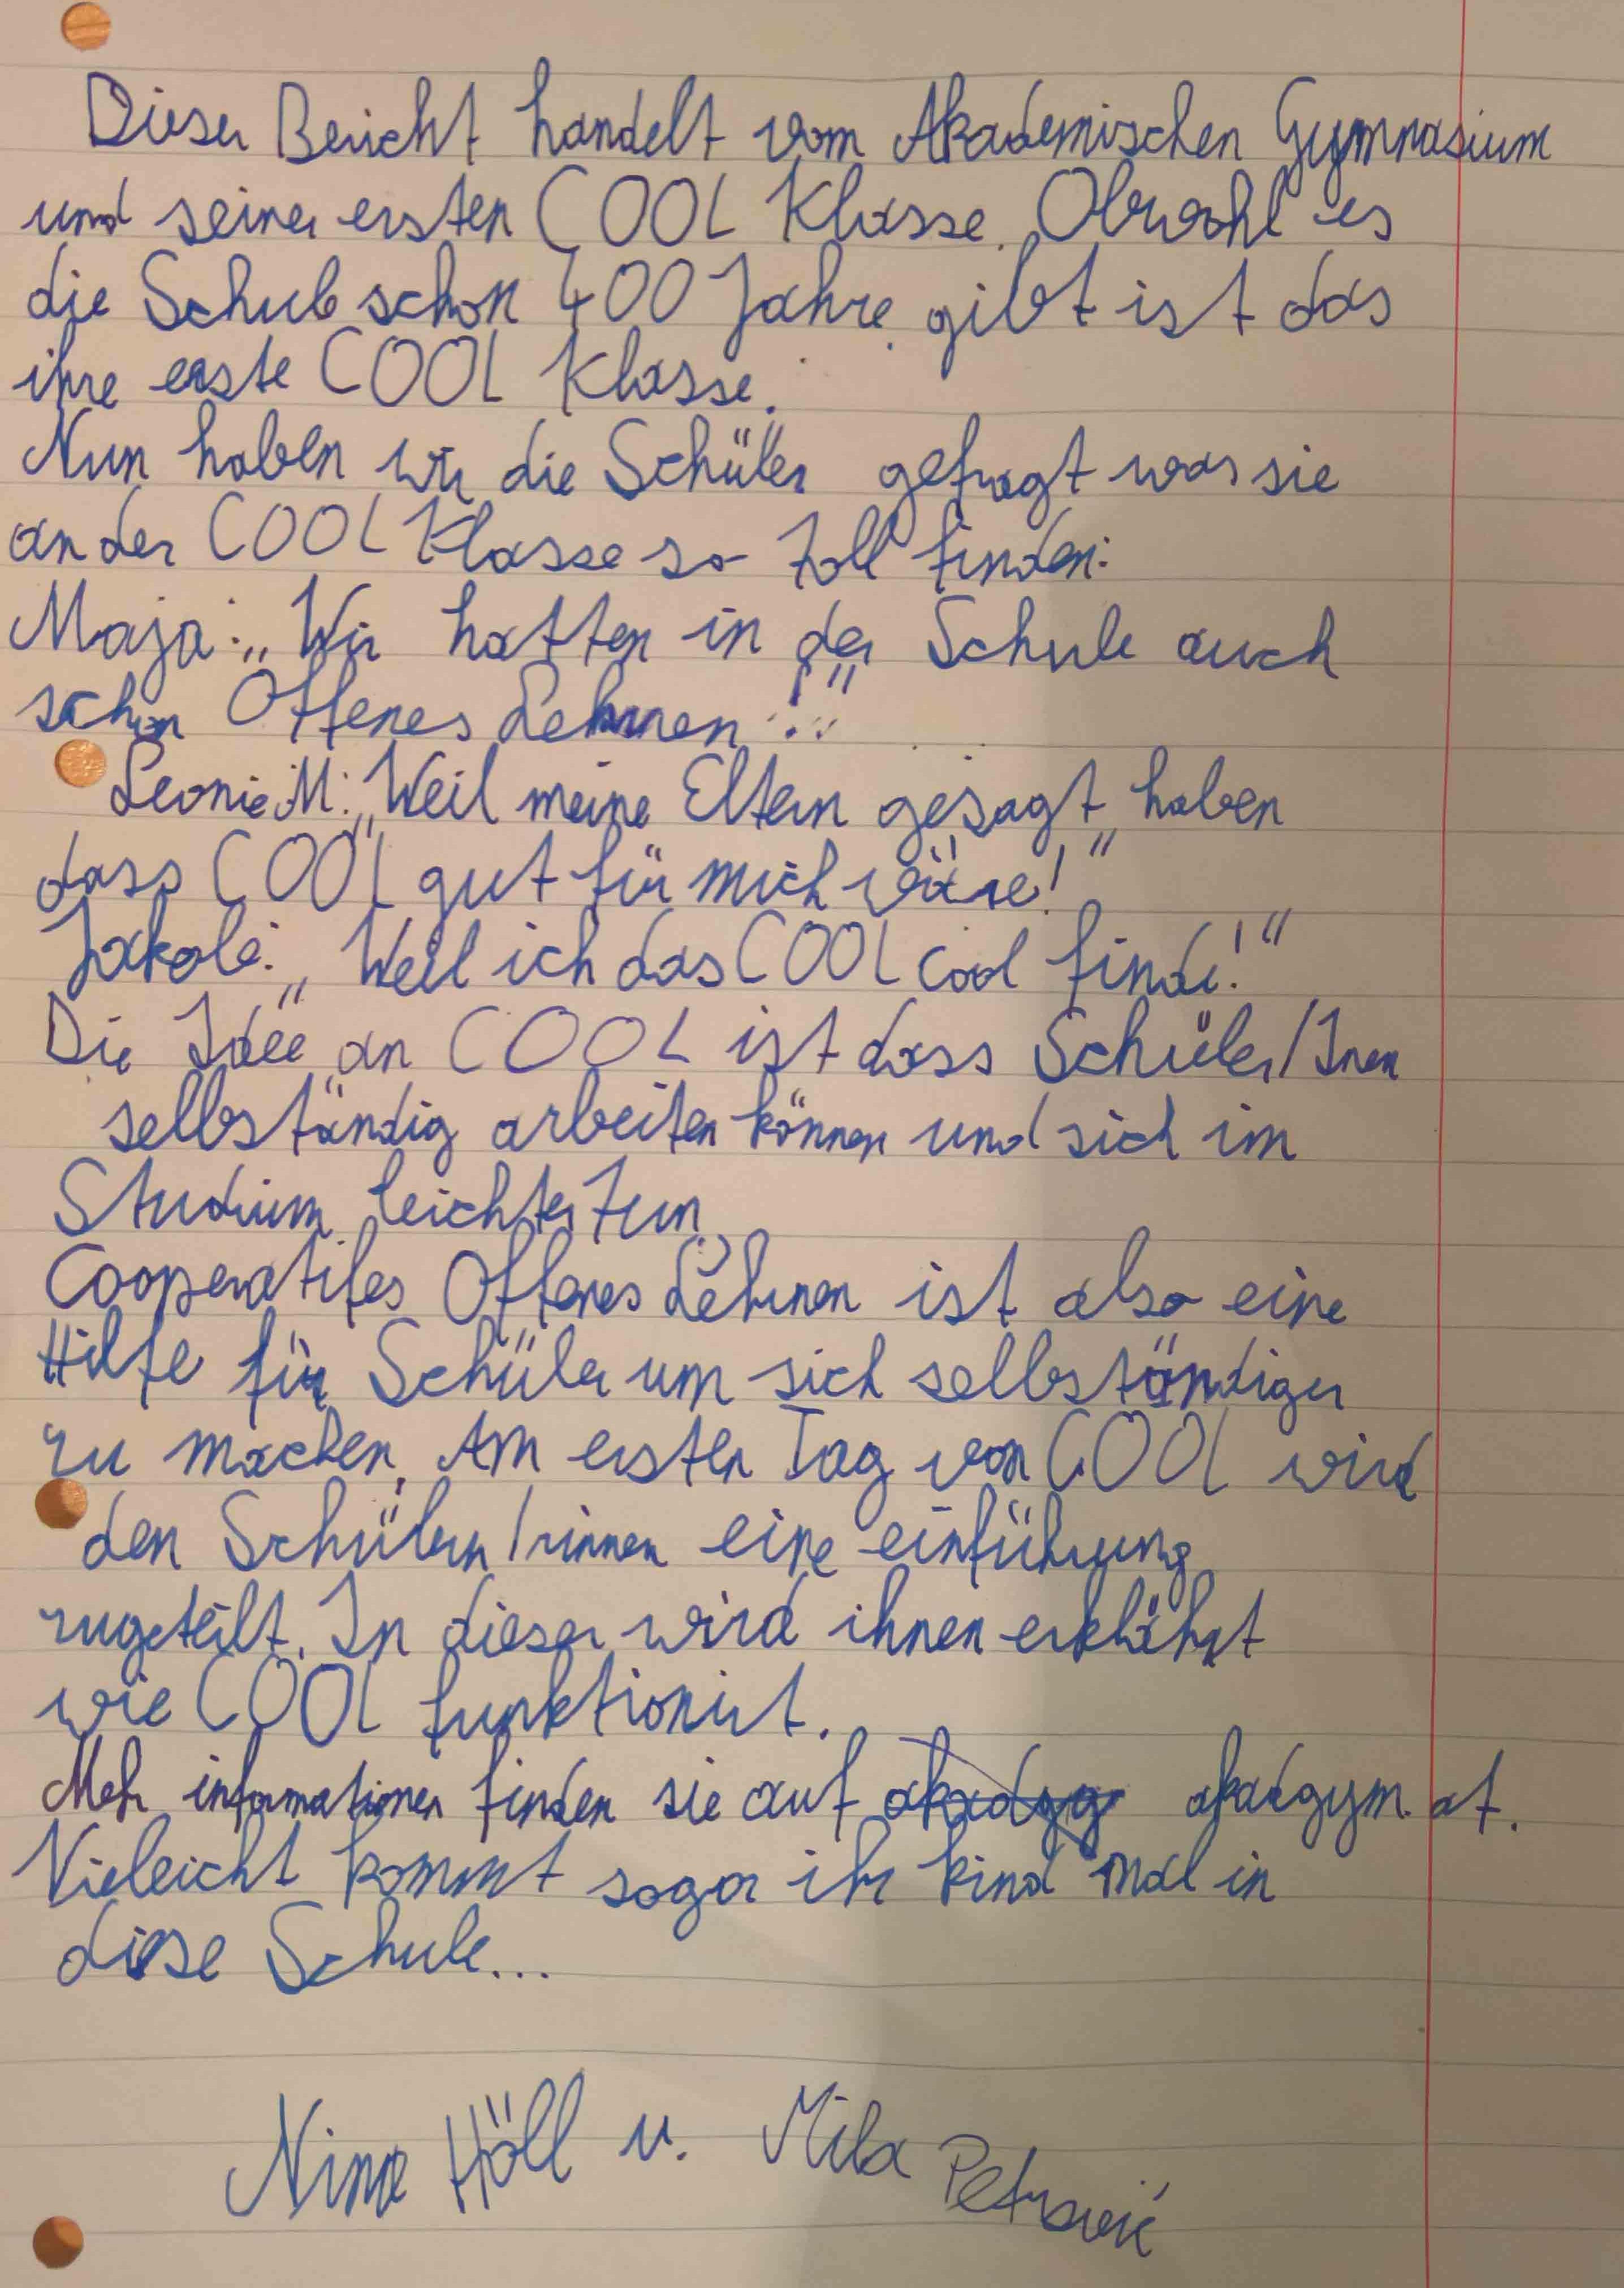 Dieser Bericht handelt vom Akademischen Gymnasium
und seiner ersten COOL Klasse. Obwohl es
die Schule schon 400 Jahre gibt ist das
ihre erste COOL Klasse.
Nun haben wir die Schüler gefragt was sie
an der COOL Klasse so toll finden:
Maja: „Wir hatten in der Schule auch
schon Offenes Lehrnen!"
Leonie M: „Weil meine Eltern gesagt haben
dass COOL gut für mich wäre!"
Jakob: „Weil ich das COOL cool finde!"
Die Idee an COOL ist dass Schüler/Inen
selbständig arbeiten können und sich im
Studium leichter tun.
Cooperatifes Offenes Lehrnen ist also eine
Hilfe für Schüler um sich selbständiger
zu machen. Am ersten Tag von COOL wird
den Schülern/rinnen eine einführung
zugeteilt. In dieser wird ihnen erklährt
wie COOL funktionirt.
Mehr informationen finden sie auf akadgym.at.
Vieleicht kommt sogar ihr kind mal in
diese Schule...
Nina Höll u. Mila Petrović